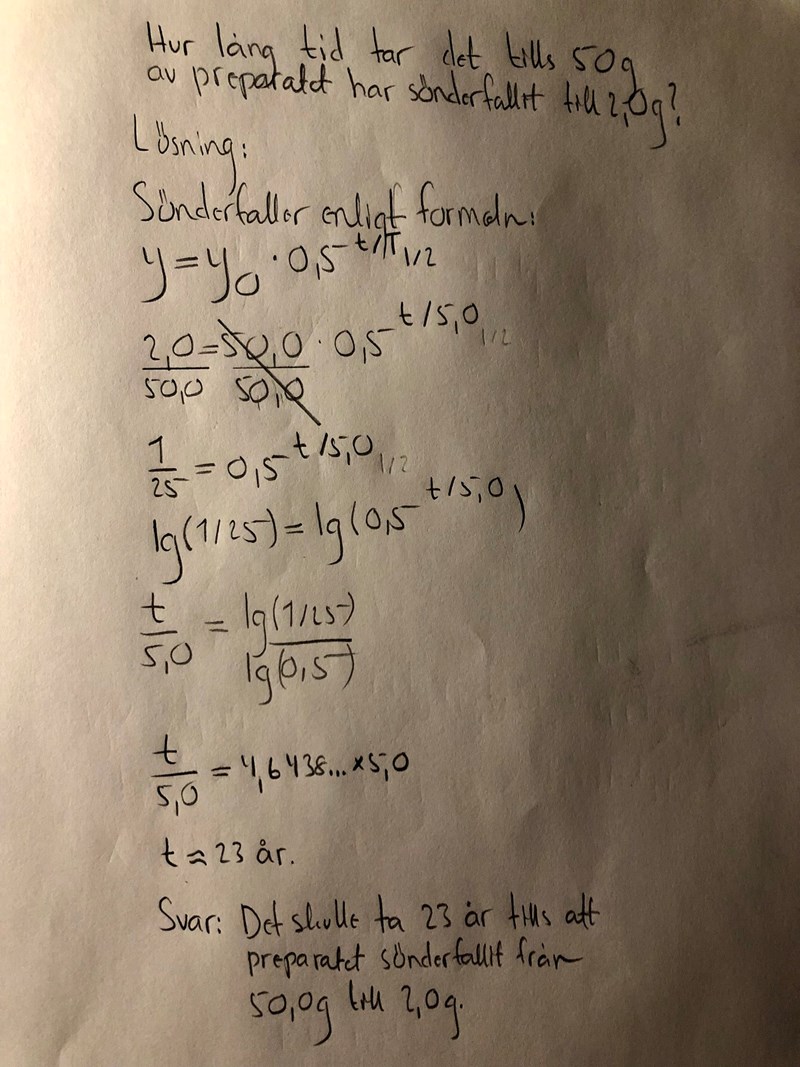 Hur lång tid tar det tills 50g
av preparatet har sönderfallit till 2,0g?
Lösning:
Sönderfaller enligt formeln:
y = y₀ · 0,5^t/T1/2
2,0/50,0 = 50,0/50,0 · 0,5^t/5,0 1/2
1/25 = 0,5^t/5,0 1/2
lg(1/25) = lg(0,5^t/5,0)
t/5,0 = lg(1/25)/lg(0,5)
t/5,0 = 4,6438... × 5,0
t ≈ 23 år.
Svar: Det skulle ta 23 år tills att
preparatet sönderfallit från
50,0g till 2,0g.